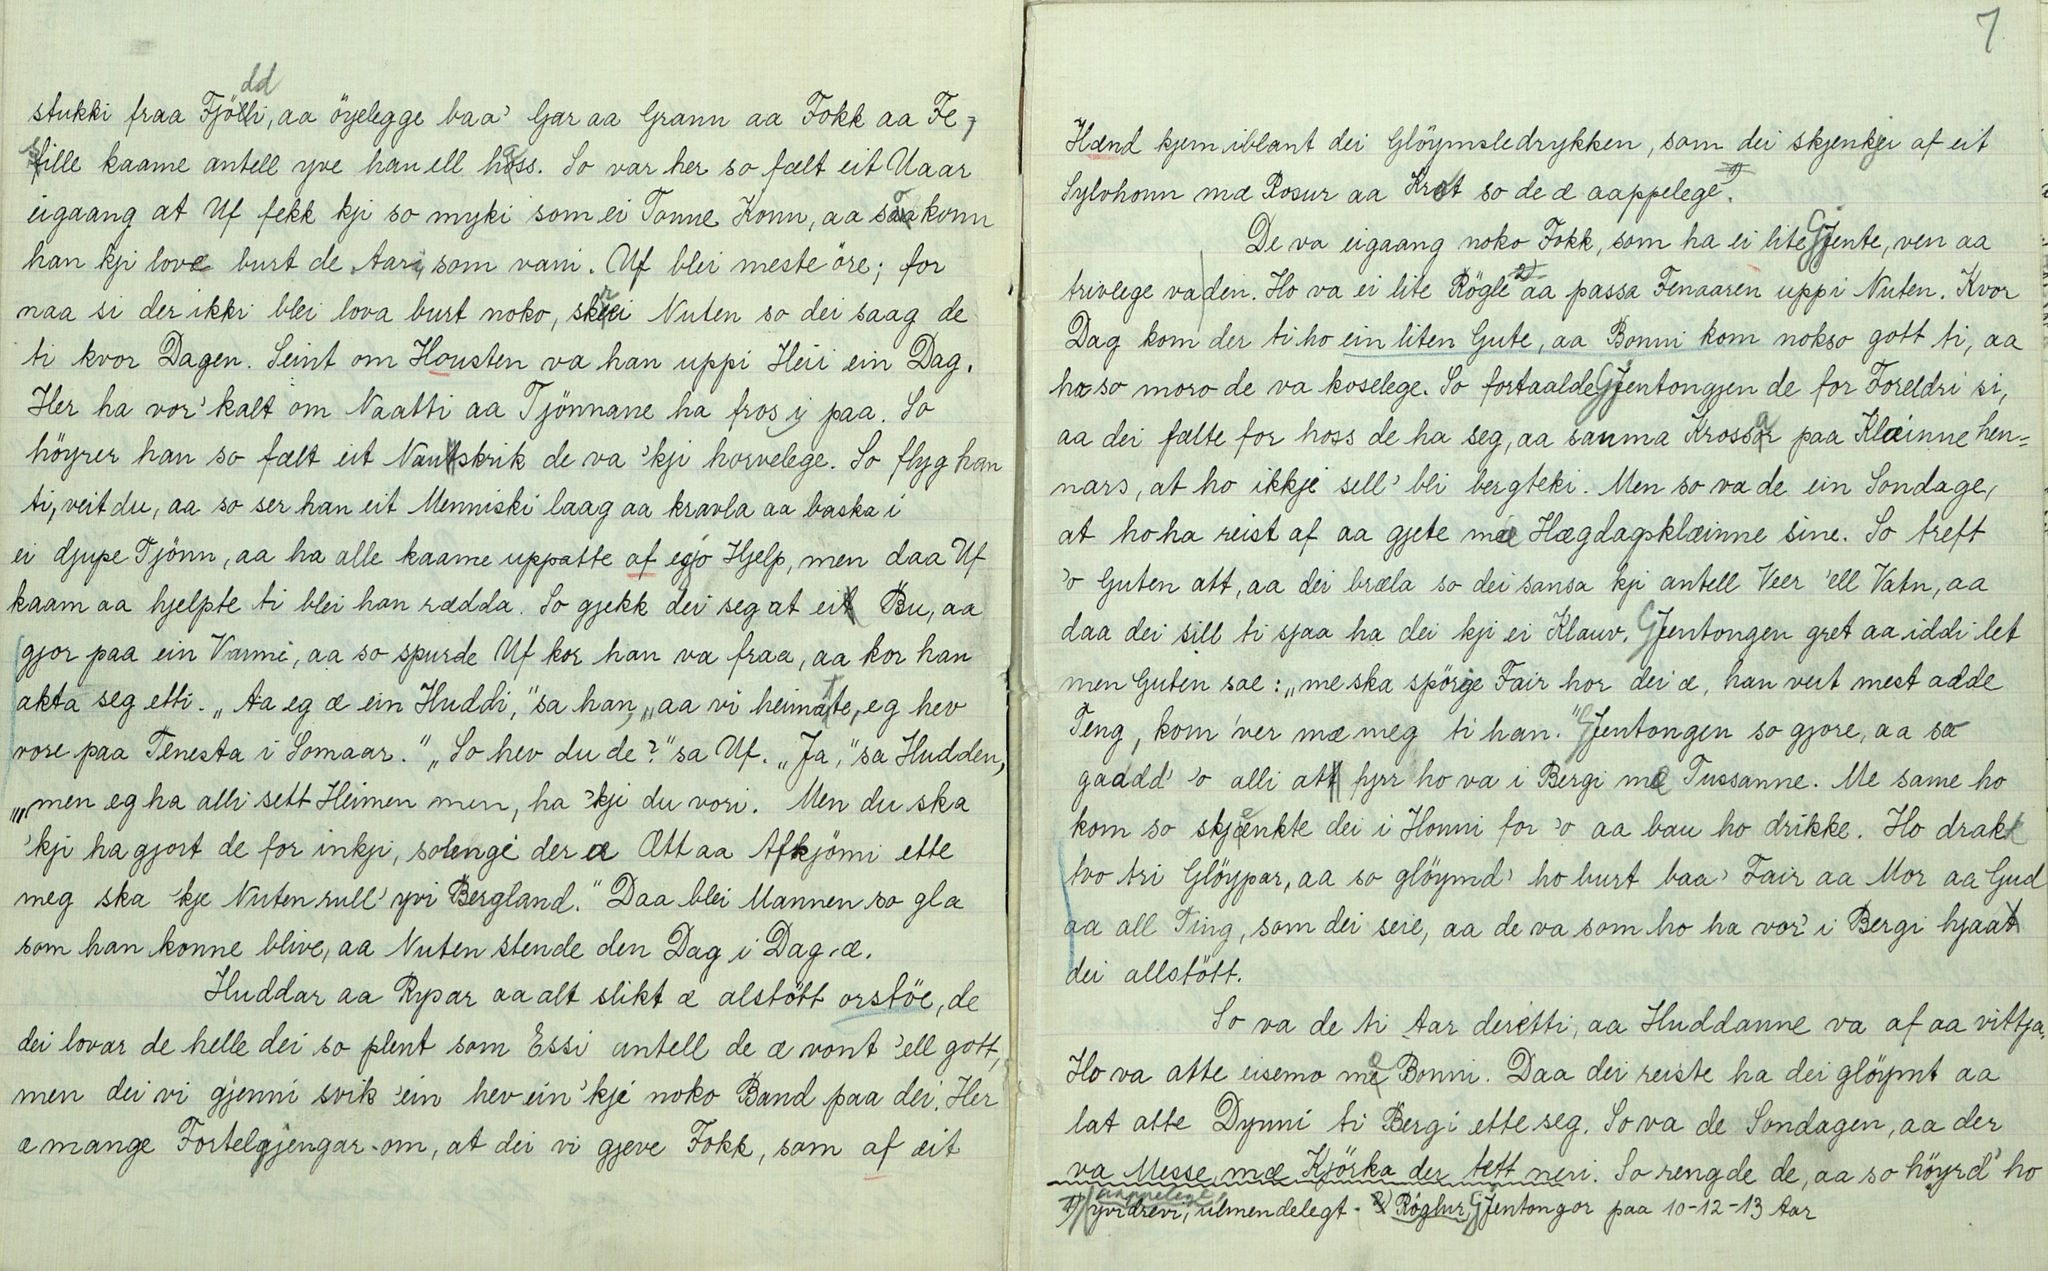 stukki fraa Fjöddi, aa öyelegge baa' Gar aa Grann aa Fokk aa Fe,
sille kaame antell yve han ell hass. So var her so fælt eit Uaar
eigaang at Uf fekk kji so myki som ei Tonne Konn, aa so konn
han kji love burt de Aari, som vani. Uf blei meste öre; for
naa si der ikki blei lova burt noko, skrei Nuten so dei saag de
ti kvor Dagen. Seint om Housten va han uppi Heii ein Dag.
Her ha vor' kalt om Naatti aa Tjönnane ha frosi paa. So
höyrer han so fælt eit Nautskrik de va 'kji horvelege. So flyg han
ti, veit du, aa so ser han eit Menniski laag aa kravla aa baska i
ei djupe Tjönn, aa ha alle kaame uppatte af egjo Hjelp, men daa Uf
kaam aa hjelpte ti blei han rædda. So gjekk dei seg at ei Bu, aa
gjor paa ein Varmi, aa so spurde Uf kor han va fraa, aa kor han
akta seg etti. „Aa eg æ ein Huddi," sa han, „aa vi heimatte, eg hev
vore paa Tenesta i Somaar." „So hev du de?" sa Uf. „Ja," sa Hudden,
„men eg ha alli sett Heimen men, ha 'kji du vori. Men du ska
'kji ha gjort de for inkji, solengi der æ Ætt aa Afkjömi ette
meg ska 'kje Nuten rull' yvi Bergland." Daa blei Mannen so gla
som han konne blive, aa Nuten stende den Dag i Dag æ.
Huddar aa Rypar aa alt slikt æ alstött orstöe, de
dei lovar de helle dei so plent som Essi antell de æ vont 'ell gott,
men dei vi gjenni svik 'ein hev ein 'kje noko Band paa dei. Her
æ mange Fortelgjengar om, at dei vi gjeve Fokk, som af eit
7
Hænd kjem iblant dei Glöymsledrykken, som dei skjenkjer af eit
Sylvhonn mæ Rosur aa Krot so de æ aappelege 1).
De va eigaang noko Fokk, som ha ei lite Gjente, ven aa
trivlege va den. Ho va ei lite Rögle 2) aa passa Fenaaren uppi Nuten. Kvor
Dag kom der ti ho ein liten Gute, aa Bonni kom nokso gott ti, aa
ha so moro de va koselege. So fortaalde Gjentongjen de for Foreldri si,
aa dei fælte for hoss de ha seg, aa sauma Krossar paa Klæinne hen=
nars, at ho ikkje sell' bli bergteki. Men so va de ein Sondage,
at ho ha reist af aa gjete mæ Hægdagsklæinne sine. So treft
'o Guten att, aa dei bræla so dei sansa kji antell Veer 'ell Vatn, aa
daa dei sill ti sjaa ha dei kji ei Klauv. Gjentongen gret aa iddi let
men Guten sae: „me ska spörje Fair hor dei æ, han veit mest adde
Teng, kom 'ver mæ meg ti han." Gjentongen so gjore, aa so
gaadd' 'o alli att fyrr ho va i Bergi mæ Tussanne. Me same ho
kom so skjenkte dei i Honni for 'o aa bau ho drikke. Ho drak
tvo tri Glöypar, aa so glöymd' ho burt baa' Fair aa Mor aa Gud
aa all Ting, som dei seie, aa de va som ho ha vor' i Bergi hjaa
dei allstött.
So va de ti Aar deretti, aa Huddanne va af aa vittja.
Ho va atte eisemo mæ Bonni. Daa dei reiste ha dei glöymt aa
lat atte Dynni ti Bergi ette seg. So va de Sondagen, aa der
va Messe mæ Kjörka der tett neri. So rengde de, aa so höyrd' ho
1) aappelege yvidrevi, ülmendelegt. 2) Röglur, Gjentongor paa 10-12-13 Aar